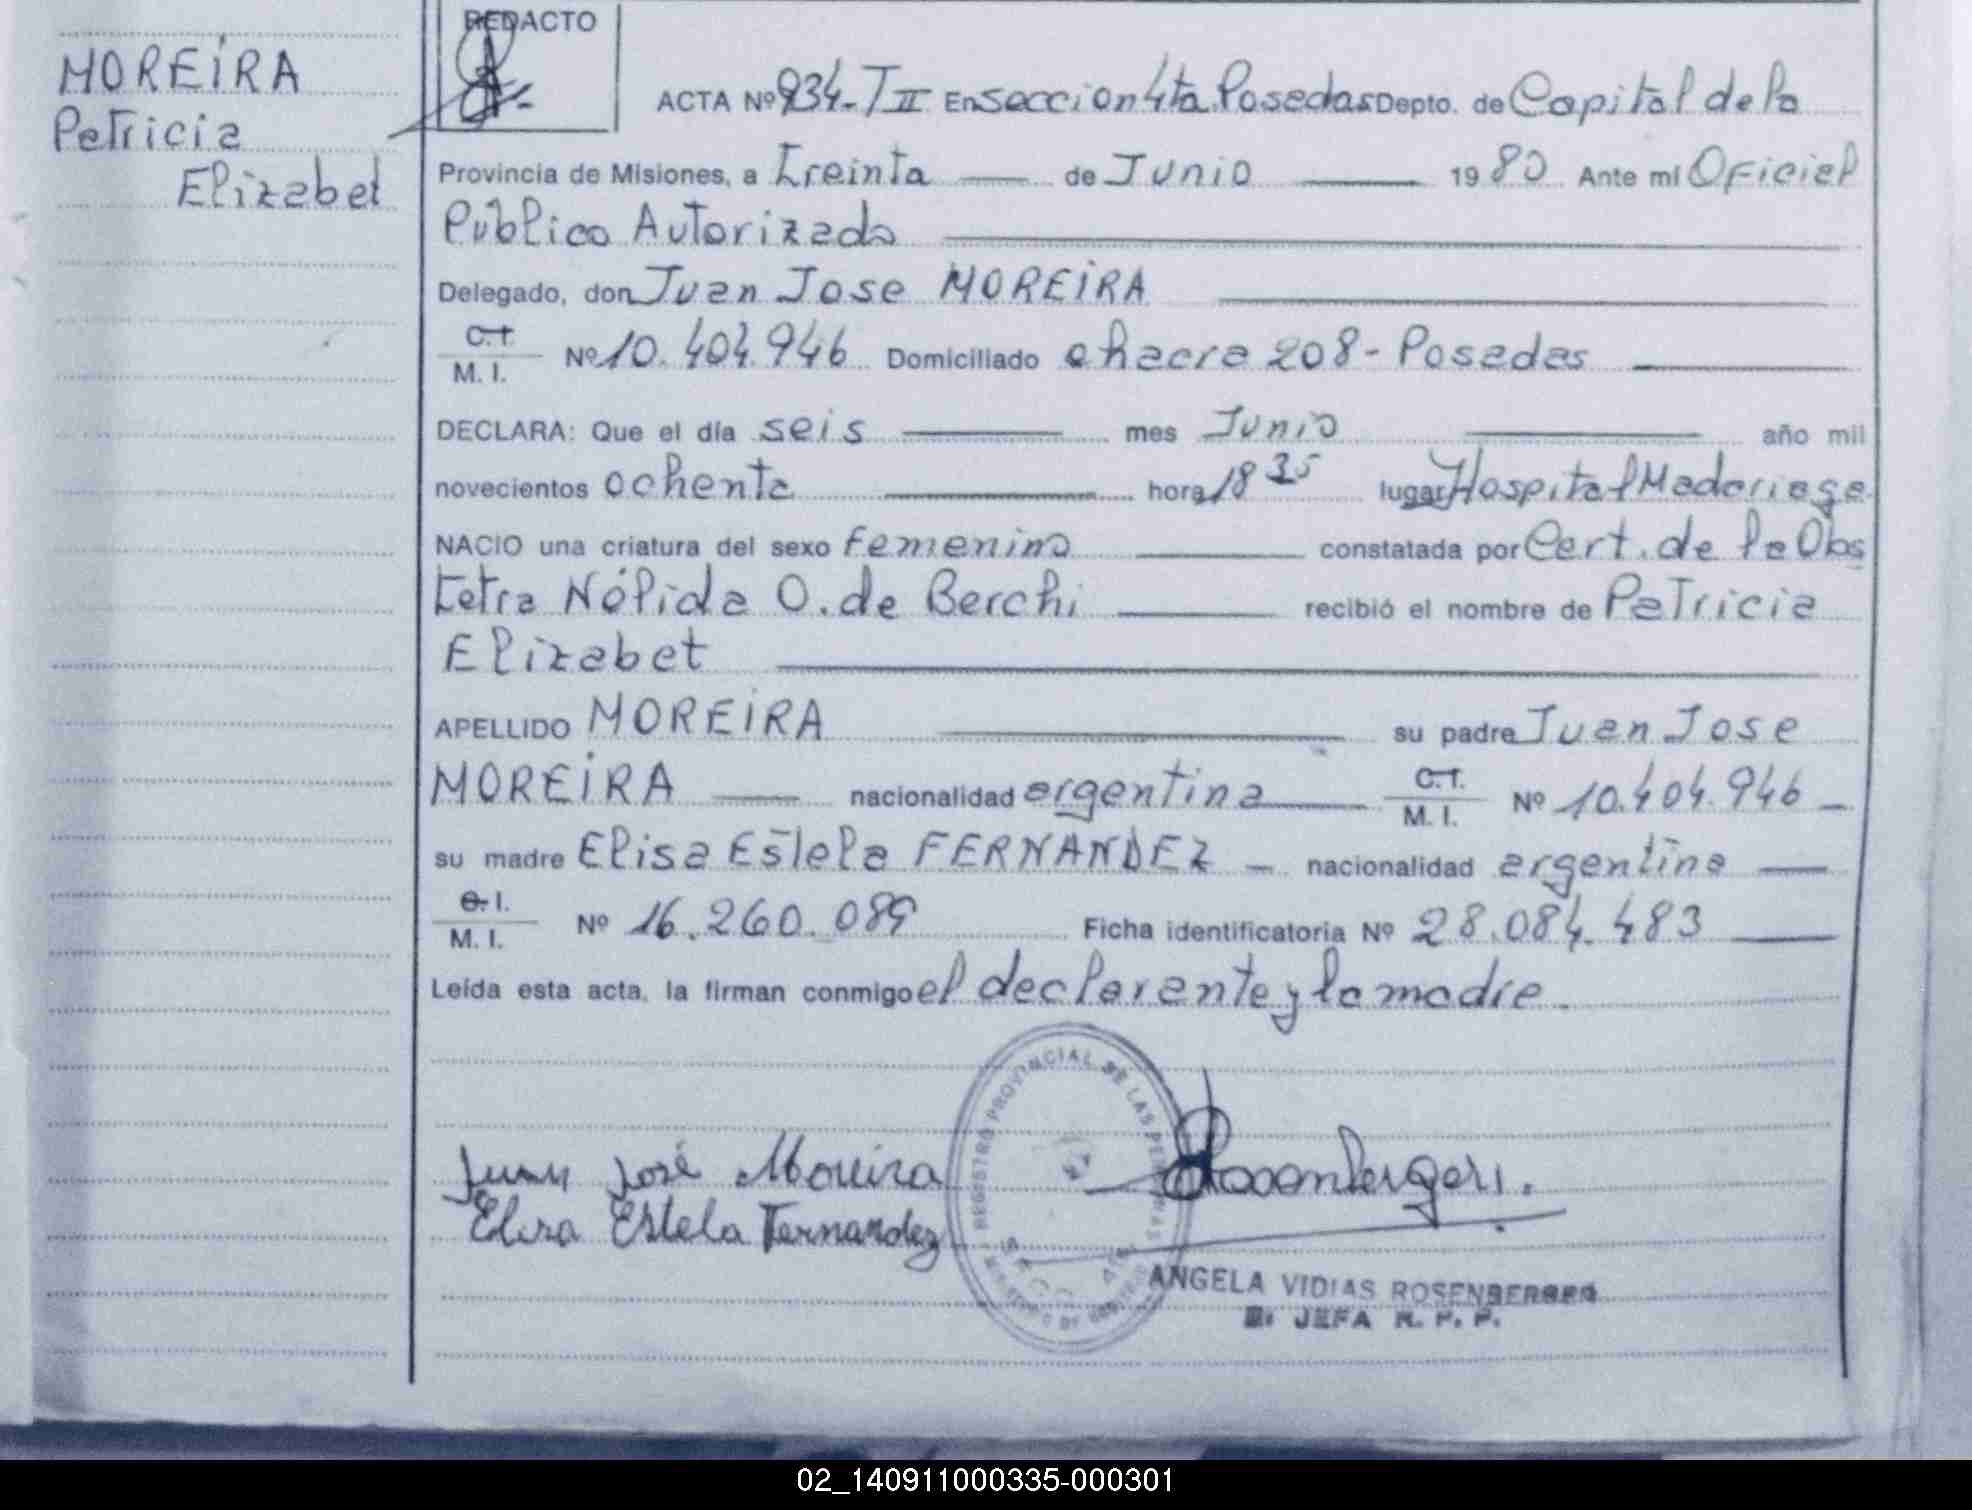 MOREÍRA
Patricia
Elizabet
REDACTO
ACTA Nº 934-TII En seccion 4ta. Posadas Depto. de Capital de la
Provincia de Misiones, a treinta de Junio 1980 Ante mí Oficial
Público Autorizado
Delegado, don Juan Jose MOREÍRA
C.I.
M. I. Nº 10.404.946 Domiciliado chacra 208-Posadas
DECLARA: Que el día seis mes Junio año mil
novecientos ochenta hora 18 35 lugar Hospital Madariaga
NACIO una criatura del sexo femenino constatada por Cert. de la Obs
tetra Nélida O. de Berchi recibió el nombre de Patricia
Elizabet
APELLIDO MOREÍRA su padre Juan Jose
MOREÍRA nacionalidad argentina C.I.
M. I. Nº 10.404.946
su madre Elisa Estela FERNANDEZ nacionalidad argentina
C. I.
M. I. Nº 16.260.089 Ficha identificatoria Nº 28.084.483
Leída esta acta, la firman conmigo el declarante y la madre.
Juan José Moreira
Elisa Estela Fernandez
REGISTRO PROVINCIAL DE LAS PERSONAS
SECC. 4ta.
MINISTERIO DE GOBIERNO
ANGELA VIDIAS ROSENBERGER
JEFA R. P. P.
02_140911000335-000301